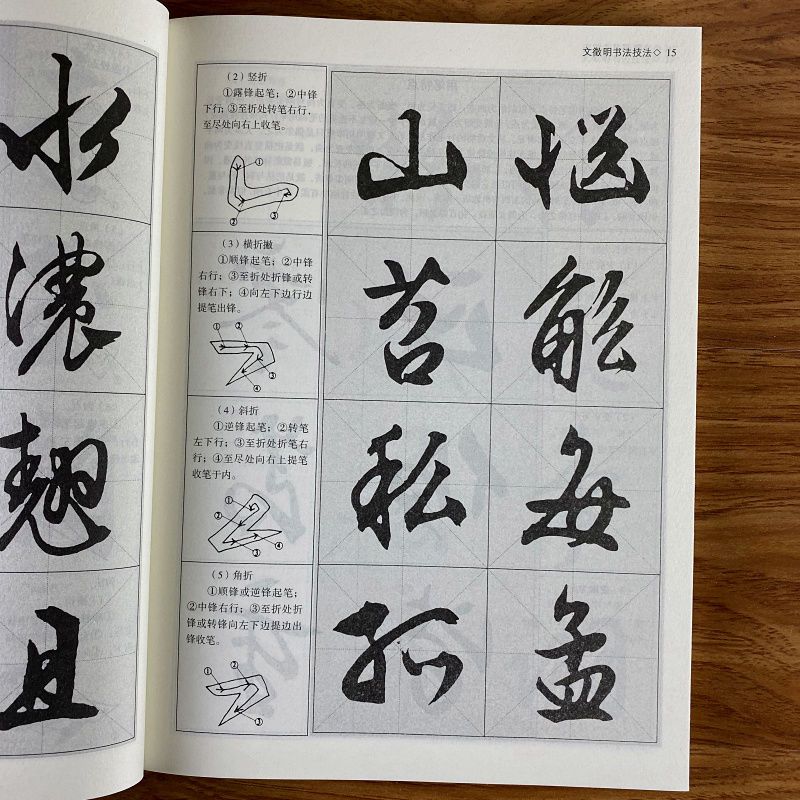 文徵明书法技法◇ 15
(2)竖折
①露锋起笔;②中锋
下行;③至折处转笔右行,
至尽处向右上收笔。
①
②
③
(3)横折撇
①顺锋起笔;②中锋
右行;③至折处折锋或转
锋右下;④向左下边行边
提笔出锋。
①
②
③
④
(4)斜折
①逆锋起笔;②转笔
左下行;③至折处折笔右
行;④至尽处向右上提笔
收笔于内。
①
②
③
④
(5)角折
①顺锋或逆锋起笔;
②中锋右行;③至折处折
锋或转锋向左下边提边出
锋收笔。
①
②
③
山
能
私
每
孤
孟
水
濃
且